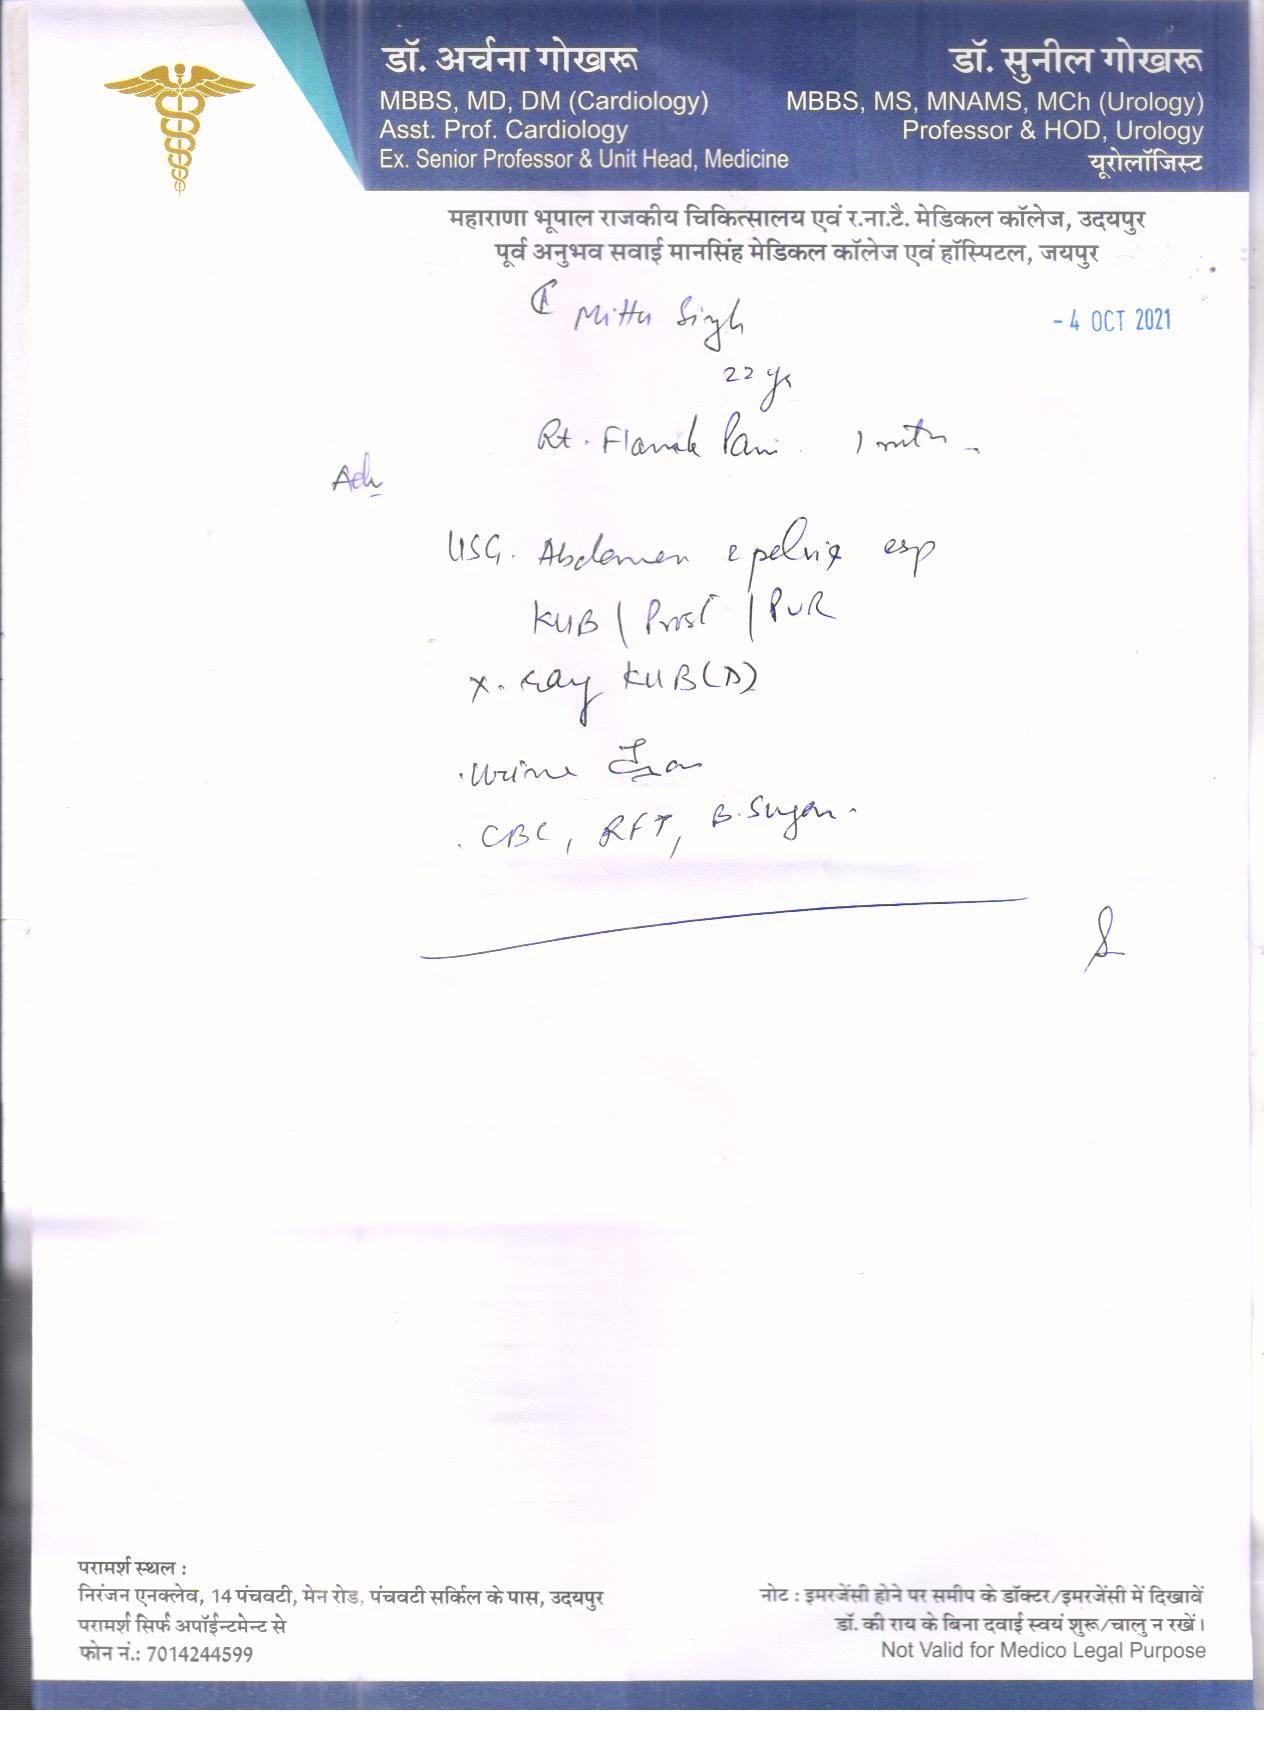 डॉ. अर्चना गोखरू
MBBS, MD, DM (Cardiology)
Asst. Prof. Cardiology
Ex. Senior Professor & Unit Head, Medicine
डॉ. सुनील गोखरू
MBBS, MS, MNAMS, MCh (Urology)
Professor & HOD, Urology
यूरोलॉजिस्ट
महाराणा भूपाल राजकीय चिकित्सालय एवं र.ना.टै. मेडिकल कॉलेज, उदयपुर
पूर्व अनुभव सवाई मानसिंह मेडिकल कॉलेज एवं हॉस्पिटल, जयपुर
Mittu Singh
- 4 OCT 2021
22 yr
Rt. Flank Pain 1 mth
Adv
USG. Abdomen c pelvis esp
KUB / Prost / PVR
X. Ray KUB (D)
. Urine Exam
. CBC, RFT, B. Sugar.
परामर्श स्थल :
निरंजन एनक्लेव, 14 पंचवटी, मेन रोड, पंचवटी सर्किल के पास, उदयपुर
परामर्श सिर्फ अपॉईन्टमेन्ट से
फोन नं.: 7014244599
नोट : इमरजेंसी होने पर समीप के डॉक्टर/इमरजेंसी में दिखावें
डॉ. की राय के बिना दवाई स्वयं शुरू/चालु न रखें।
Not Valid for Medico Legal Purpose